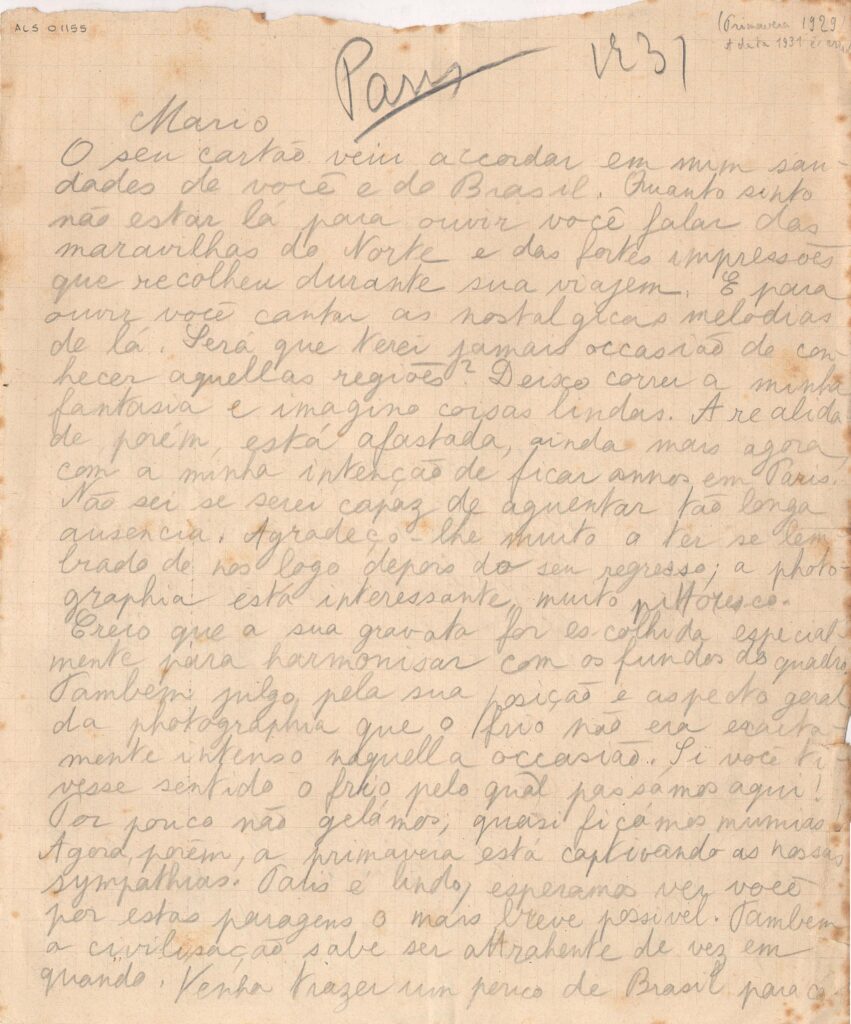 ALS 01155
(Primavera 1929)
A data 1931 é
Paris 1931
Mario
O seu cartão veiu accordar em mim sau-
dades de você e do Brasil. Quanto sinto
não estar lá para ouvir você falar das
maravilhas do Norte e das fortes impressões
que recolheu durante sua viajem. E para
ouvir você cantar as nostalgicas melodias
de lá. Será que terei jamais occasião de con-
hecer aquellas regiões? Deixo correr a minha
fantasia e imagino coisas lindas. A realida-
de, porém, está afastada, ainda mais agora,
com a minha intenção de ficar annos em Paris.
Não sei se serei capaz de aguentar tão longa
ausencia. Agradeço-lhe muito a ter se lem-
brado de nos logo depois do seu regresso; a photo-
graphia está interessante, muito pittoresco.
Creio que a sua gravata foi escolhida especial-
mente para harmonisar com os fundos do quadro.
Tambem julgo, pela sua posição e aspecto geral
da photographia que o frio não era exacta-
mente intenso naquella occasião. Si você ti-
vesse sentido o frio pelo qual passámos aqui!
Por pouco não gelámos, quasi ficámos mumias!
Agora, porem, a primavera está captivando as nossas
sympathias. Paris é lindo, esperamos ver você
por estas paragens o mais breve possivel. Tambem
a civilisação sabe ser attrahente de vez em
quando. Venha trazer um pouco de Brasil para